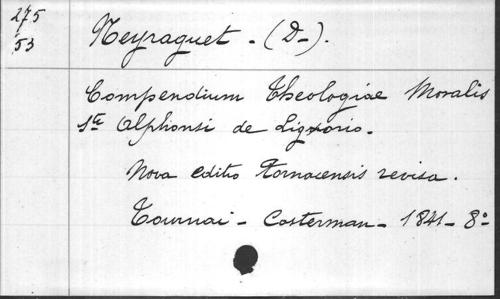 275
53
Neyraguet - (D-).
Compendium Theologiae Moralis
Sti Alphonsi de Ligorio.
Nova editio Tornacensis revisa.
Tournai - Casterman - 1841 - 8°